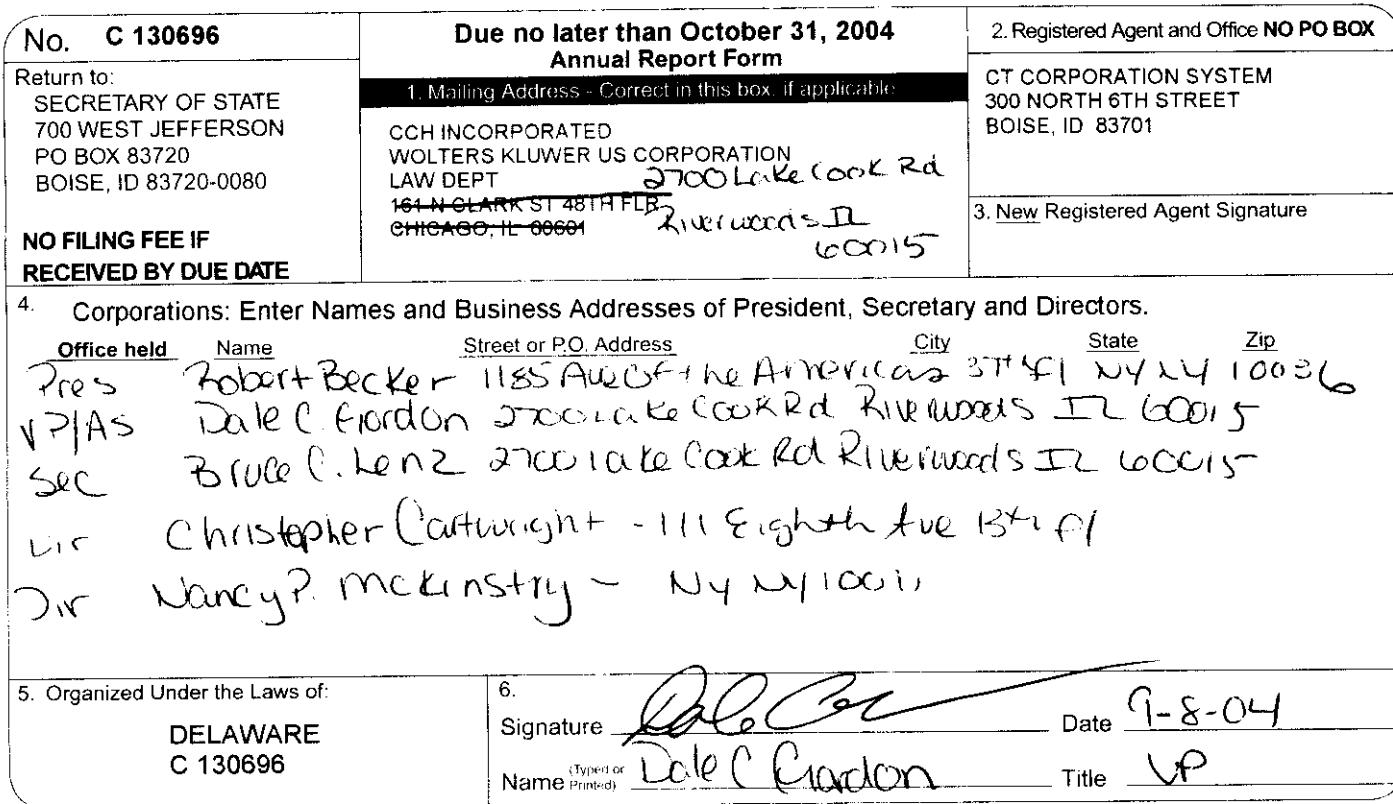 No. C 130696
Return to:
SECRETARY OF STATE
700 WEST JEFFERSON
PO BOX 83720
BOISE, ID 83720-0080
NO FILING FEE IF
RECEIVED BY DUE DATE
Due no later than October 31, 2004
Annual Report Form
1. Mailing Address - Correct in this box, if applicable
CCH INCORPORATED
WOLTERS KLUWER US CORPORATION
LAW DEPT 2700 Lake Cook Rd
161 N CLARK ST 48TH FLR
CHICAGO, IL 60601 Riverwoods IL
60015
2. Registered Agent and Office NO PO BOX
CT CORPORATION SYSTEM
300 NORTH 6TH STREET
BOISE, ID 83701
3. New Registered Agent Signature
4. Corporations: Enter Names and Business Addresses of President, Secretary and Directors.
Office held Name Street or P.O. Address City State Zip
Pres Robert Becker 1185 Ave of the Americas 37th fl NY NY 10036
VP/AS Dale C. Gordon 2700 Lake Cook Rd Riverwoods IL 60015
Sec Bruce C. Lenz 2700 Lake Cook Rd Riverwoods IL 60015
Dir Christopher Cartwright - 111 Eighth Ave 13th fl
Dir Nancy P. McKinstry - NY NY 10011
5. Organized Under the Laws of:
DELAWARE
C 130696
6.
Signature Date 9-8-04
Name (Typed or Printed) Dale C Gordon Title VP